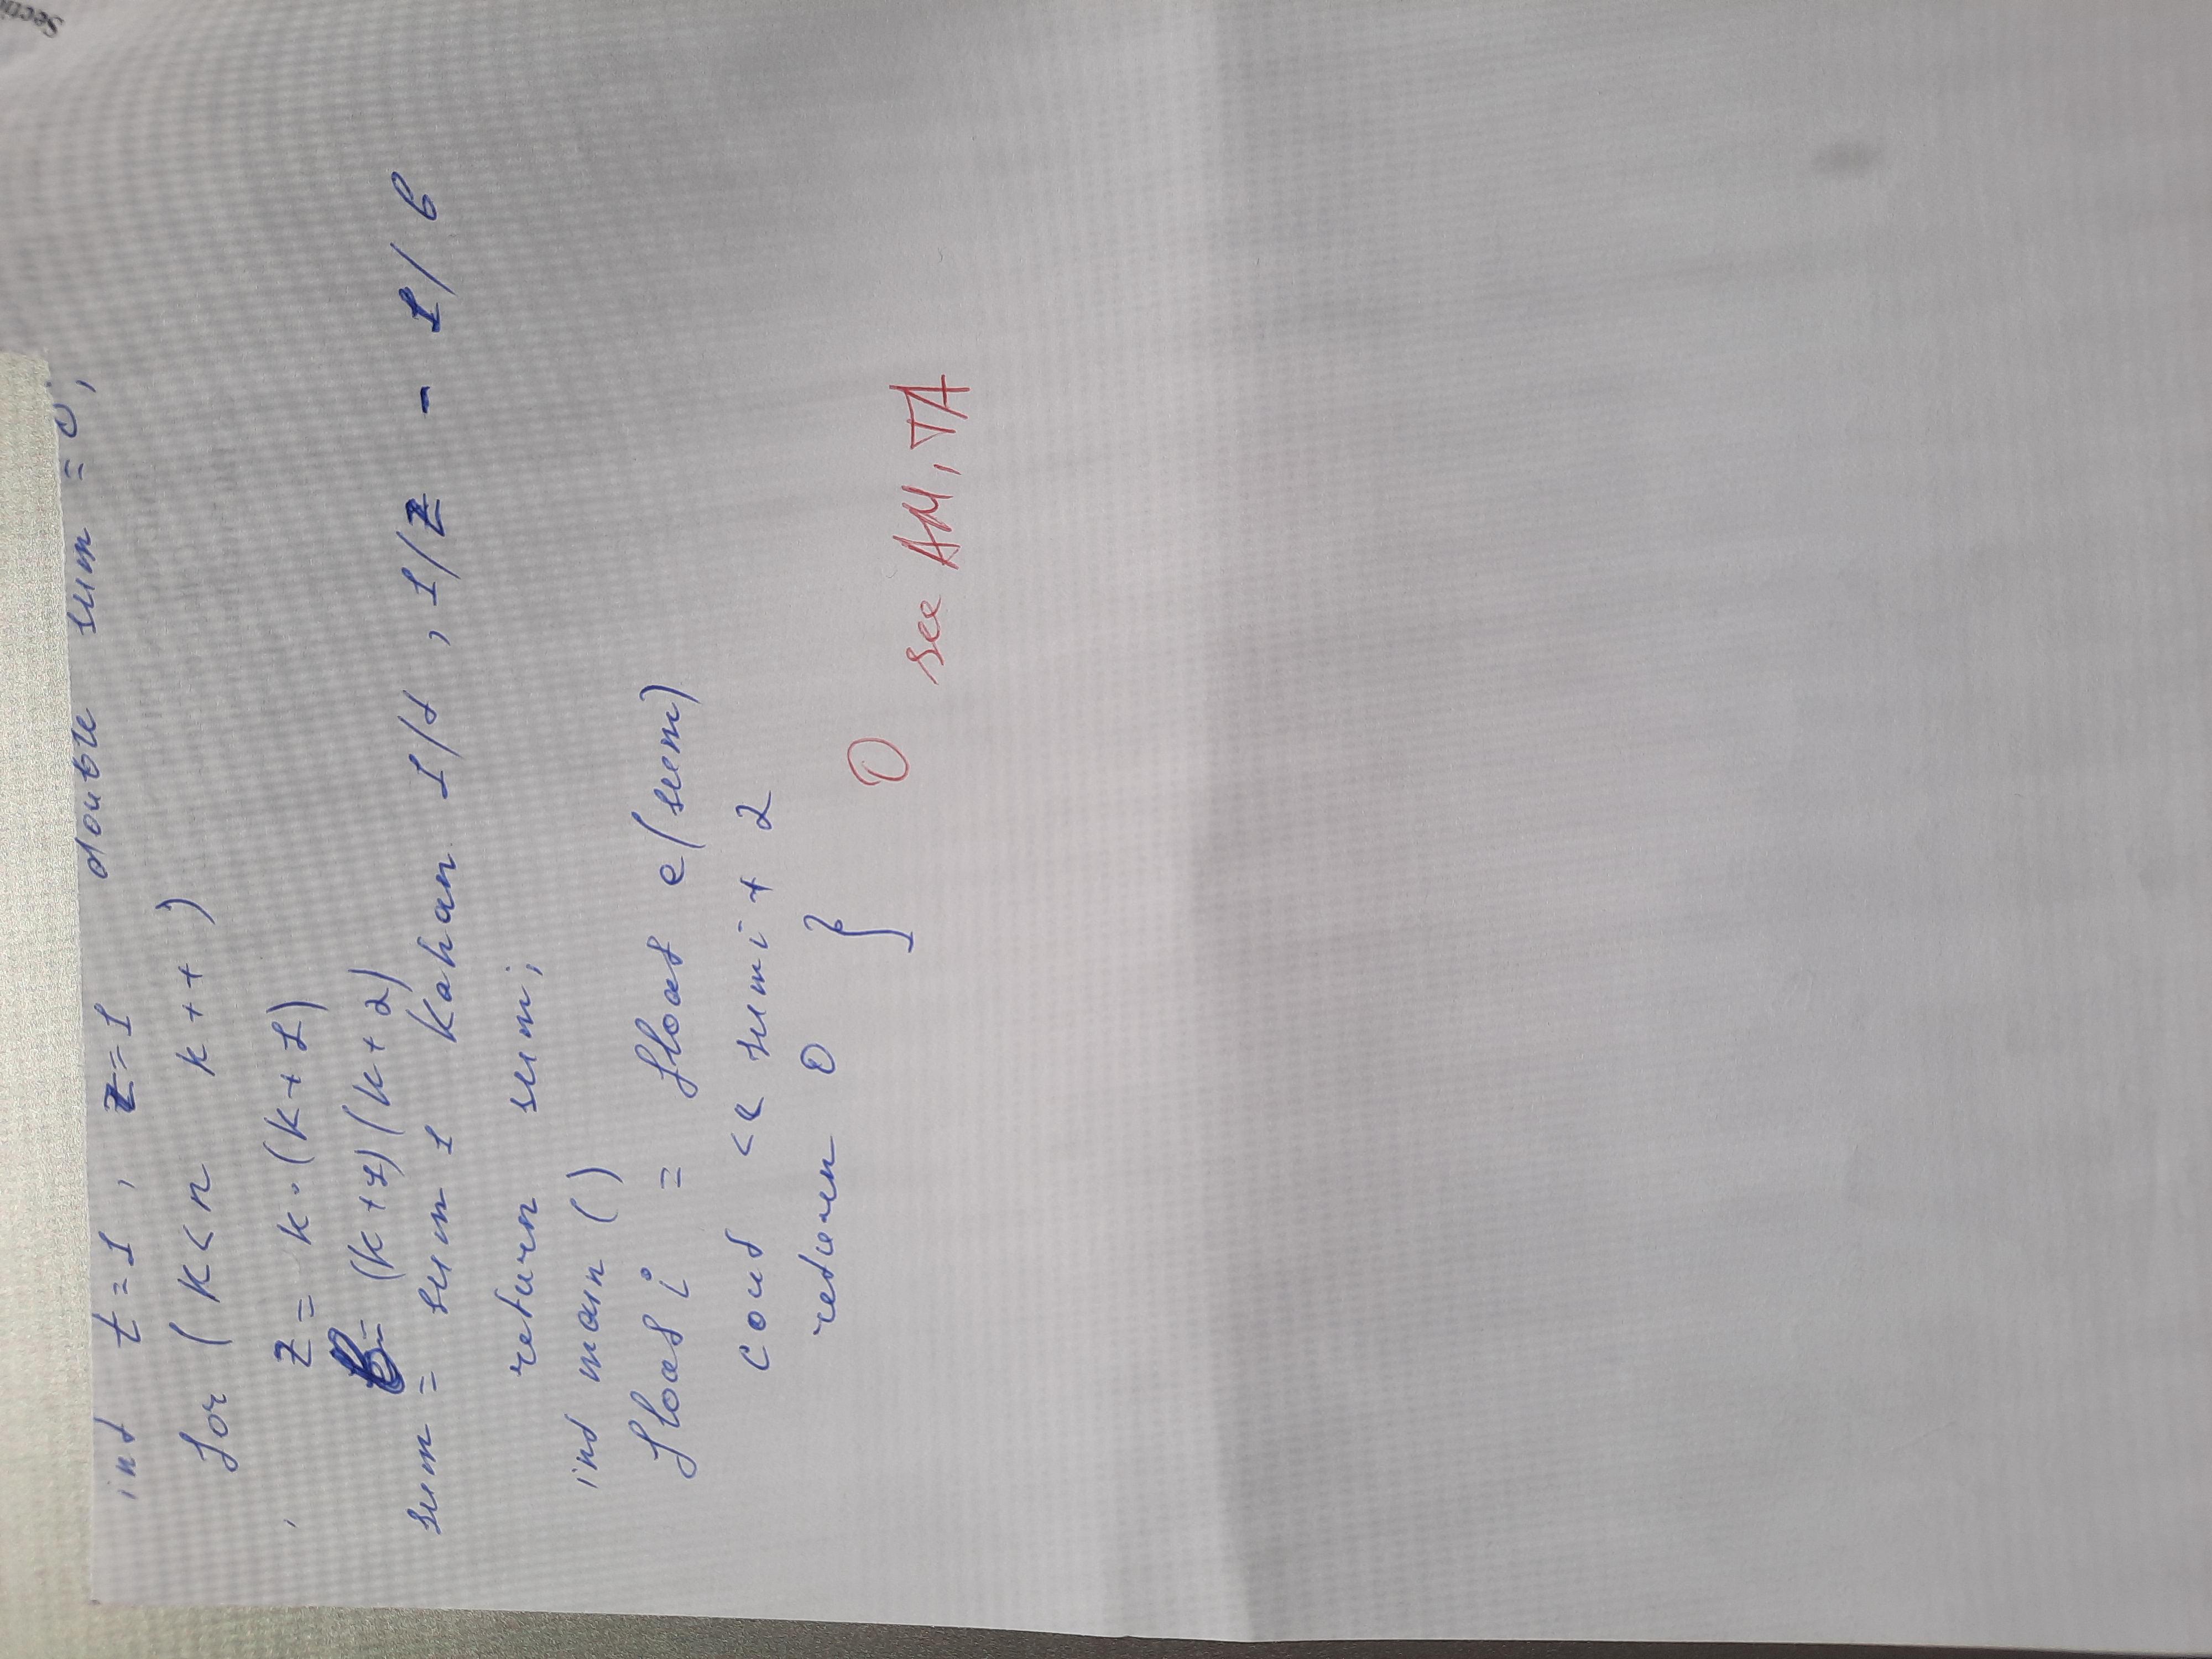 Secti
int t=1, z=1 double sum = 0;
for (k<n k++)
z = k·(k+1)
b= (k+1)(k+2)
sum = sum 1 Kahan 1/t, 1/z - 1/b
return sum;
int main ()
float i = float e(sum)
cout << sumi + 2
return 0 }
0
see AM, TA